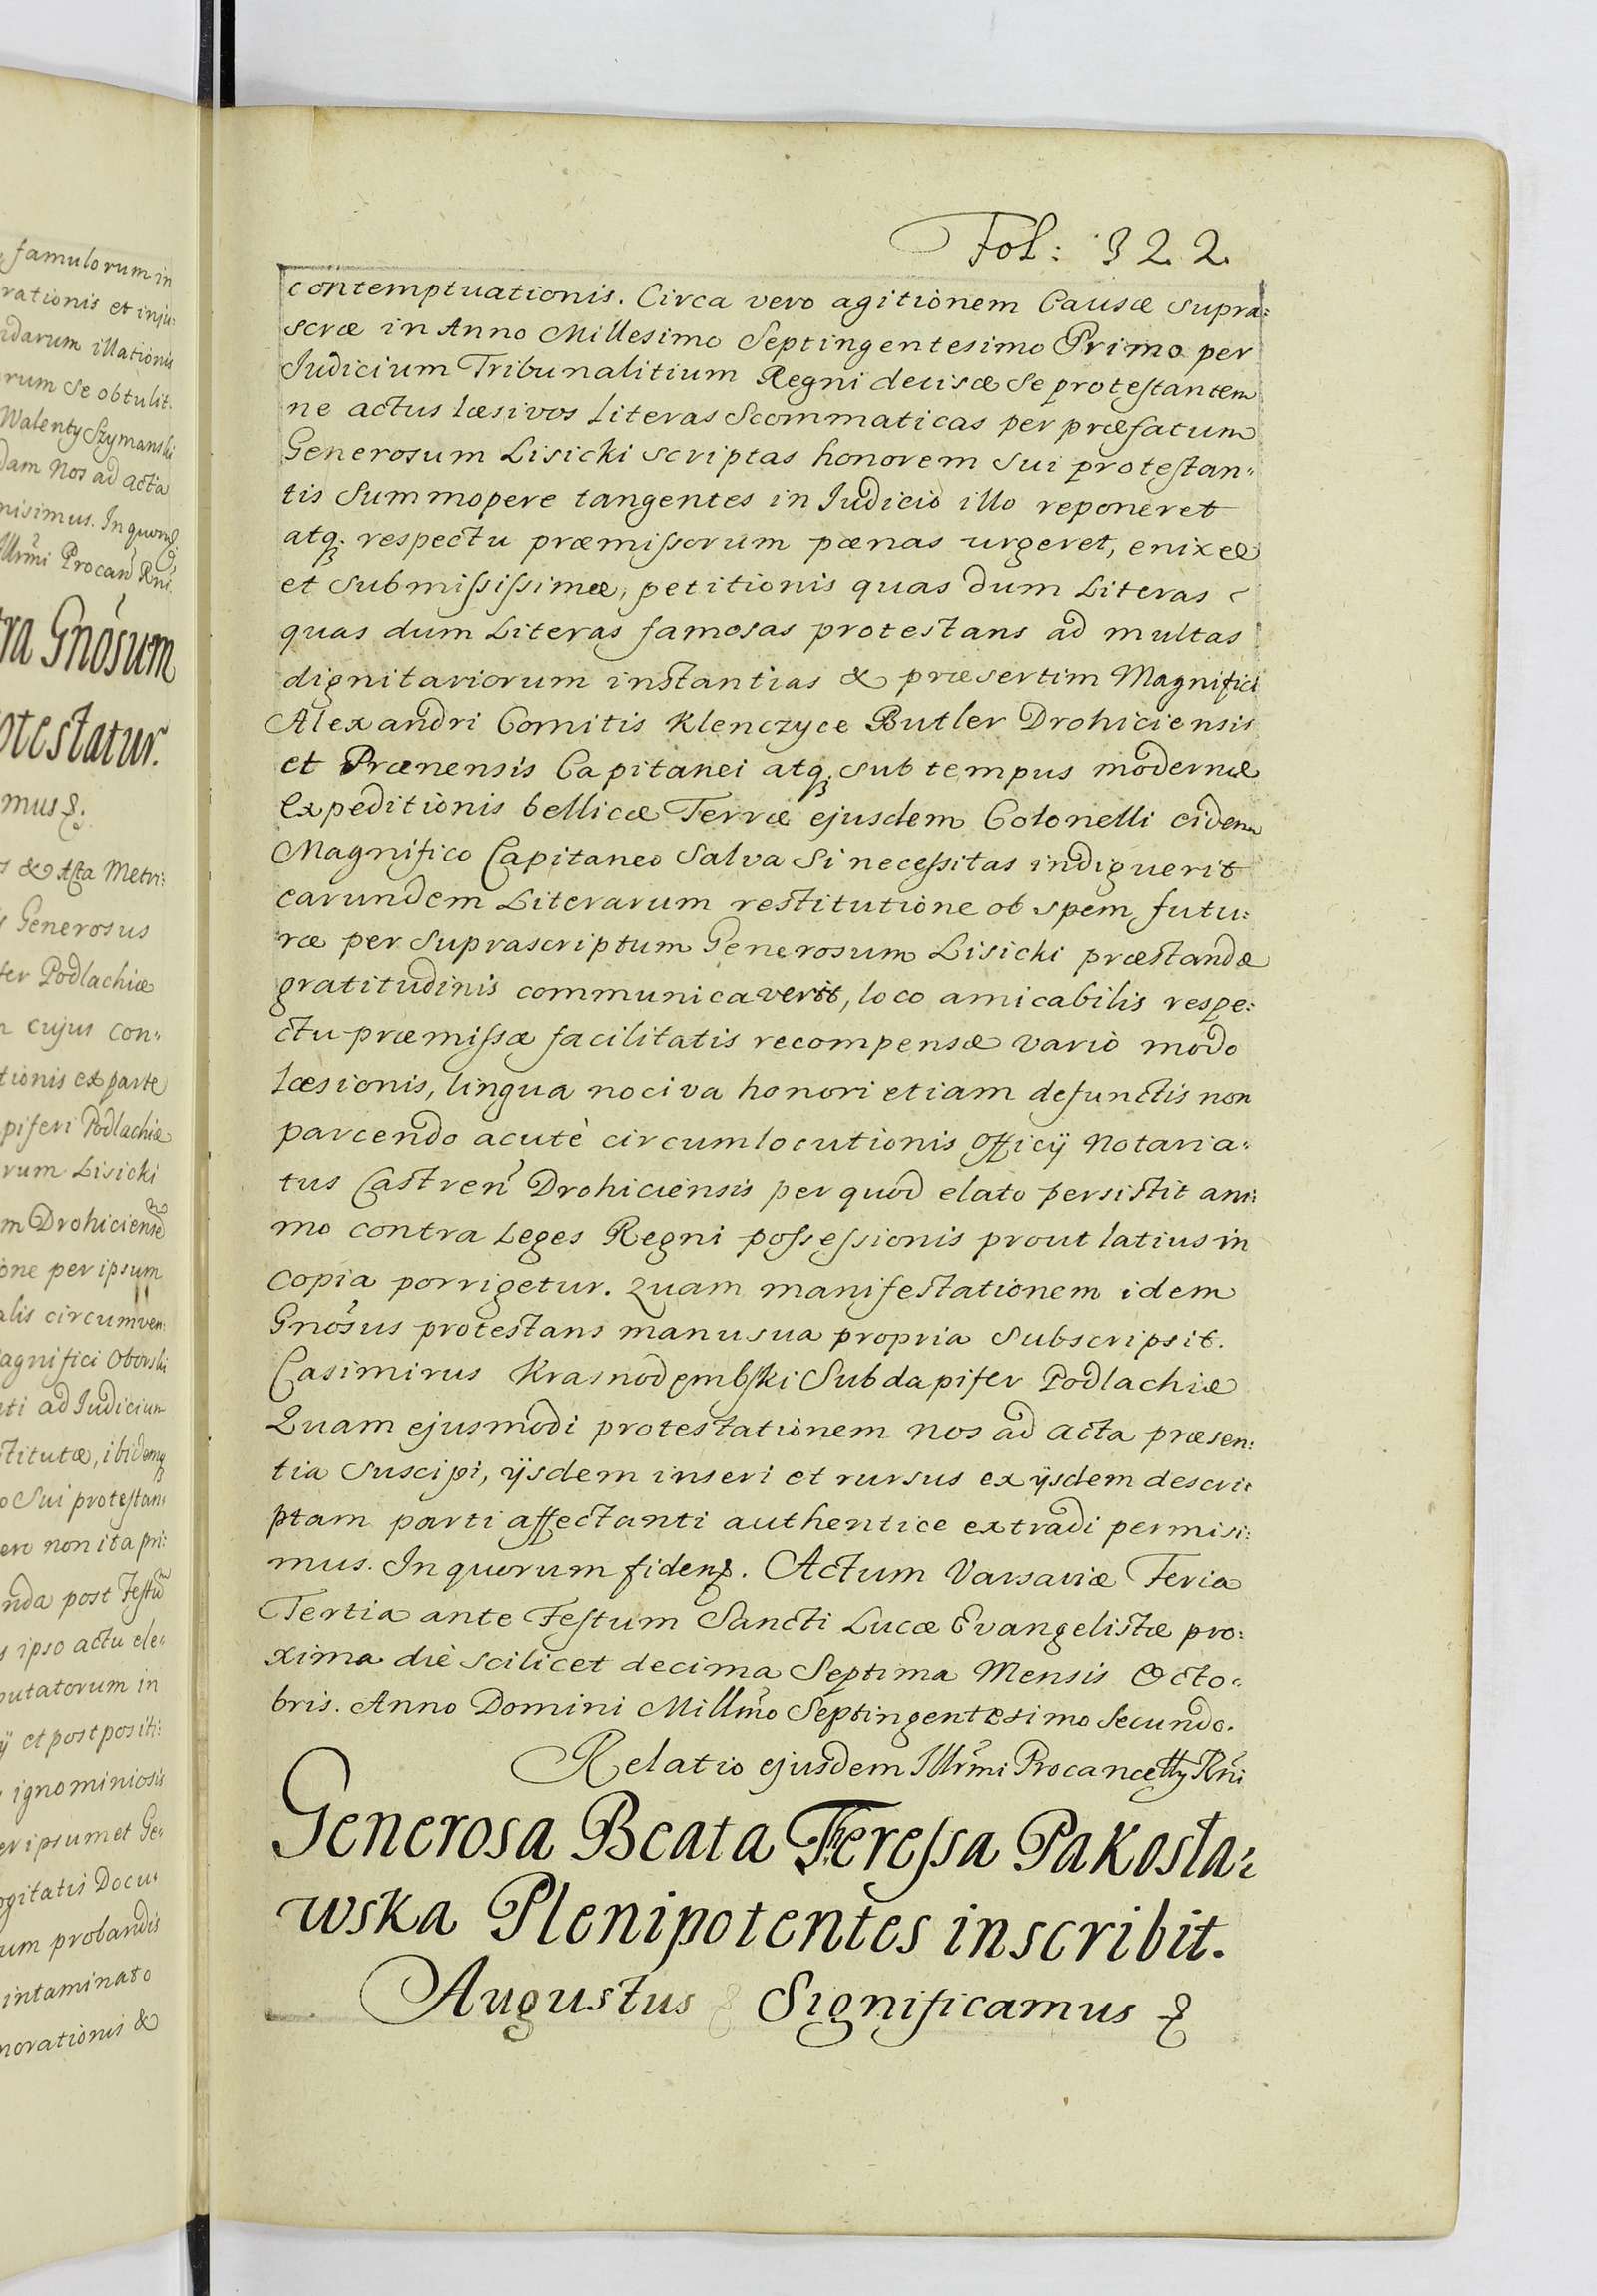 famulorum in
rationis et inju:
darum illationis
rum se obtulit.
Walenty Szymanski
dam Nos ad acta
misimus. In quorum
Illrmi Procan Rni.
tra Gnosum
otestatur.
mus &.
& Acta Metri:
Generosus
fer Podlachiæ
cujus con:
tionis ex parte
piferi Podlachiæ
rum Lisicki
m Drohiciense
one per ipsum
alis circumven:
agnifici Oborski
ti ad Judicium
titutæ, ibidemq
o Sui protestan:
ere non ita pri:
nda post Festũ
s ipso actu ele:
putatorum in
ij et postpositi:
ignominiosis
er ipsum et Ge:
ogitatis Docu:
um probandis
intaminato
norationis &
Fol: 322.
contemptuationis. Circa vero agitionem Causæ supra:
scræ in Anno Millesimo Septingentesimo Primo per
Judicium Tribunalitium Regni decisæ se protestantem
ne actus læsivos Literas Scommaticas per præfatum
Generosum Lisicki scriptas honorem sui protestan:
tis Summopere tangentes in Judicio illo reponeret
atq. respectu præmissorum pœnas urgeret, enixæ
et submississimæ, petitionis quas dum Literas
quas dum Literas famosas protestans ad multas
dignitariorum instantias & præsertim Magnifici
Alexandri Comitis Klenczyce Butler Drohiciensis
et Prænensis Capitanei atq. sub tempus modernæ
Expeditionis bellicæ Terræ ejusdem Colonelli eidem
Magnifico Capitaneo Salva Si necessitas indiguerit
earundem Literarum restitutione ob spem futu:
ræ per Suprascriptum Generosum Lisicki præstandæ
gratitudinis communicaverit, loco amicabilis respe:
ctu præmissæ facilitatis recompensæ variò modo
læsionis, lingua nociva honori etiam defunctis non
parcendo acutè circumlocutionis Officij Notaria:
tus Castren Drohiciensis per quod elato persistit ani:
mo contra Leges Regni possessionis prout latius in
Copia porrigetur. Quam manifestationem idem
Gnosus protestans manu sua propria Subscripsit.
Casimirus Krasnodembski Subdapifer Podlachiæ
Quam ejusmodi protestationem nos ad acta præsen:
tia suscipi, ijsdem inseri et rursus ex ijsdem descri:
ptam parti affectanti authentice extradi permisi:
mus. In quorum fidem &. Actum Varsaviæ Feria
Tertia ante Festum Sancti Lucæ Evangelistæ pro:
xima diè scilicet decima Septima Mensis Octo:
bris. Anno Domini Millmo Septingentesimo Secundo.
Relatio ejusdem Illrmi Procancellrij Rni
Generosa Beata Teressa Pakosla:
wska Plenipotentes inscribit.
Augustus & Significamus &